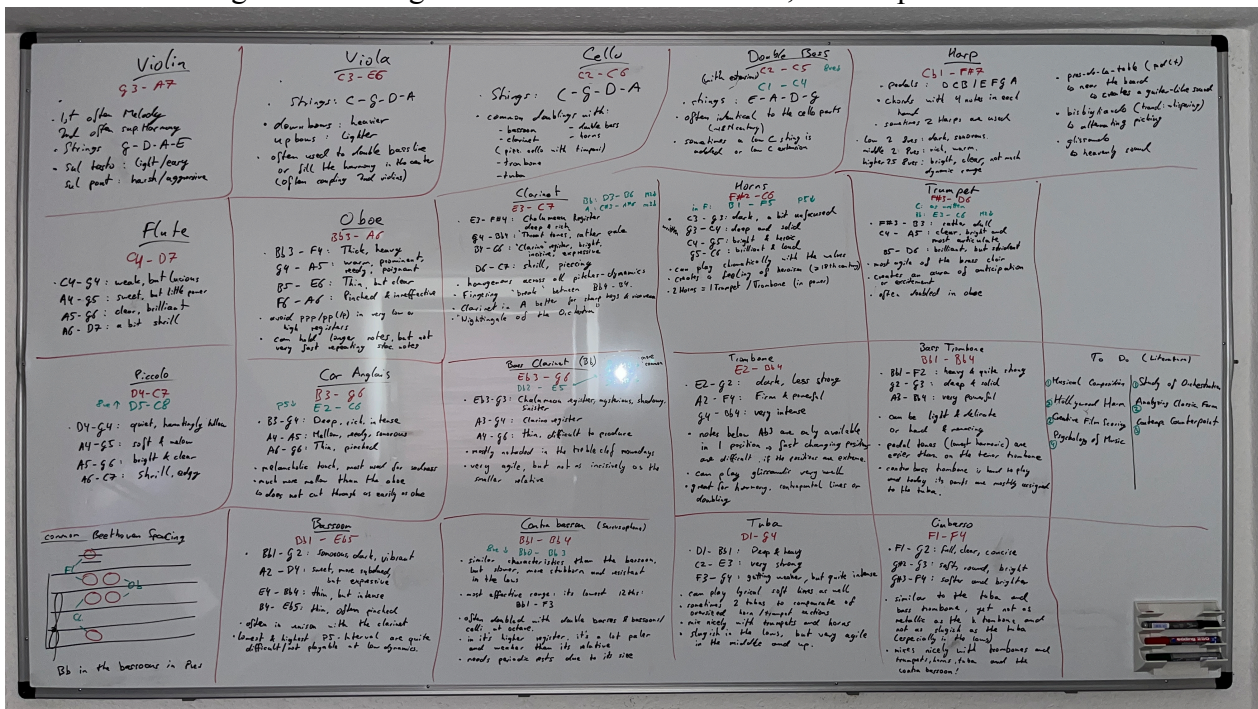 Violin
G3 - A7
1st often Melody
2nd often sup. Harmony
Strings G-D-A-E
Sul tasto: light/easy
Sul pont: harsh/aggressive
Viola
C3 - E6
Strings: C-G-D-A
down bows: heavier
up bows: lighter
often used to double bassline
or fill the harmony in the center
(often coupling 2nd violins)
Cello
C2 - C6
Strings: C-G-D-A
common doublings with:
- bassoon - double bass
- clarinet - horns
(pizz. cello with timpani)
- trombone
- tuba
Double Bass
(with extension) C2 - C5 8ve↓
C1 - C4
strings: E-A-D-G
often identical to the cello parts
sometimes a low C string is
added or low C extension
Harp
Cb1 - F#7
pedals: DCB/EFGA
chords with 4 notes in each
hand
sometimes 2 Harps are used
low 2 8ves: dark, sonorous
middle 2 8ves: rich, warm
higher 2.5 8ves: bright, clear, not much
dynamic range
pres-de-la-table (pdlt)
↳ near the board
↳ creates a guitar-like sound
bisbigliando (transl: whispering)
↳ alternating picking
glissando
↳ heavenly sound
Flute
C4 - D7
C4-G4: weak, but luscious
A4-G5: sweet, but little power
A5-G6: clear, brilliant
A6-D7: a bit shrill
Oboe
Bb3 - A6
Bb3 - F4: Thick, heavy
G4 - A5: warm, prominent,
reedy, poignant
B5 - E6: Thin, but clear
F6 - A6: Pinched & ineffective
avoid ppp/pp(/p) in very low or
high registers
can hold longer notes, but not
very fast repeating stacc notes
Clarinet
E3 - C7
Bb: D3-B6 M2↓
A: C#3-A6 m3↓
E3-F#4: Chalumeau Register
deep & rich
G4-Bb4: "Throat tones", rather pale
B4-C6: "Clarino" register, bright,
incisive, expressive
D6-C7: shrill, piercing
homogenous across all pitches-dynamics
Fingering "break" between Bb4-B4.
Clarinet in A better for sharp keys &
"Nightingale of the Orchestra"
Horns
F#2 - C6
in F: B1 - F5 P5↓
C3-G3: dark, a bit unfocused
G3-C4: deep and solid
C4-G5: bright & heroic
G5-C6: brilliant & loud
can play chromatically with the valves
creates a feeling of heroism (≥18th century)
2 Horns = 1 Trumpet / Trombone (in power)
Trumpet
F#3 - D6
C: as written
Bb: E3 - C6 M2↓
F#3 - B3: rather dull
C4 - A5: clear, bright and
most articulate
B5 - D6: brilliant, but strident
most agile of the brass choir
creates an aura of anticipation
or excitement
often doubled in oboe
Piccolo
D4-C7
8ve↑ D5-C8
D4-G4: quiet, hauntingly hollow
A4-G5: soft & mellow
A5-G6: bright & clear
A6-C7: shrill, edgy
Cor Anglais
B3 - G6
P5↓ E2 - C6
B3-G4: Deep, rich, intense
A4 - A5: Mellow, reedy, sonorous
A6 - G6: Thin, pinched
melancholic touch, most used for sadness
much more mellow than the oboe
↳ does not cut through as easily as oboe
Bass Clarinet (Bb)
Eb3 - G6
Db2 - E5
more
common
Eb3-G3: Chalumeau register, mysterious, shadowy,
Sinister
A3-G4: Clarino register
A4-G6: thin, difficult to produce
mostly notated in the treble clef nowadays
very agile, but not as incisively as the
smaller relative
Trombone
E2 - Bb4
E2-G2: dark, less strong
A2 - F4: Firm & powerful
G4 - Bb4: very intense
notes below Ab3 are only available
in 1 position → fast changing positions
are difficult, if the positions are extreme.
can play glissandi very well
great for harmony, contrapuntal lines or
doubling
Bass Trombone
Bb1 - Bb4
Bb1-F2: heavy & quite strong
G2 - G3: deep & solid
A3 - Bb4: very powerful
can be light & delicate
or hard & menacing
pedal tones (lowest harmonic) are
easier than on the tenor trombone
contra bass trombone is hard to play
and today its parts are mostly assigned
to the tuba.
To Do (Literature)
① Musical Composition
② Hollywood Harm
③ Creative Film Scoring
④ Psychology of Music
① Study of Orchestration
② Analyzing Classic Form
③ Contemp Counterpoint
common Beethoven Spacing
F
Db
Bb in the bassoons in
Bassoon
Bb1 - Eb5
Bb1-G2: sonorous, dark, vibrant
A2 - D4: sweet, more subdued,
but expressive
E4 - Bb4: thin, but intense
B4 - Eb5: thin, often pinched
often in unison with the clarinet
lowest & highest P5-Interval are quite
difficult/not playable at low dynamics.
Contra bassoon (sarrusophone)
Bb1 - Bb4
8ve↓ Bb0 - Bb3
similar characteristics than the bassoon,
but slower, more stubborn and resistant
in the lows
most effective range: its lowest 12ths:
Bb1 - F3
often doubled with double basses & bassoons/
celli at octave.
in its higher register, it's a lot paler
and weaker than its relative
needs periodic rests due to its size
Tuba
D1 - G4
D1 - Bb1: Deep & heavy
C2 - E3: very strong
F3 - G4: getting weaker, but quite intense
can play lyrical soft lines as well
sometimes 2 tubas to compensate of
oversized horn/trumpet sections
mix nicely with trumpets and horns
slugish in the lows, but very agile
in the middle and up.
Cimbasso
F1 - F4
F1 - G2: full, clear, concise
G#2 - G3: soft, round, bright
G#3 - F4: softer and brighter
similar to the tuba and
bass trombone, yet not as
metallic as the b trombone and
not as slugish as the tuba
(especially in the lows)
mixes nicely with trombones and
trumpets, horns, tuba and the
contra bassoon!